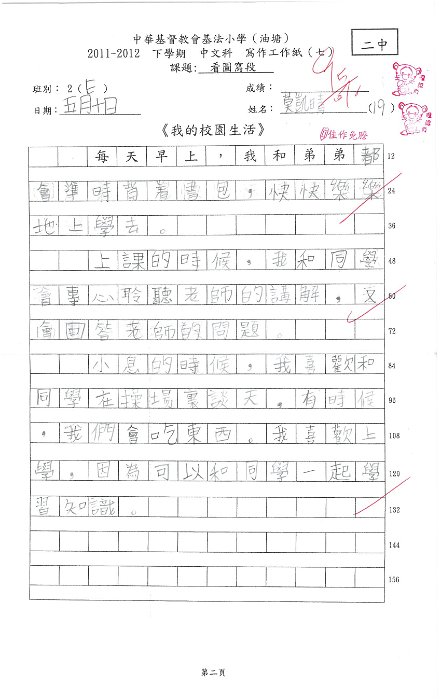 中華基督教會基法小學（油塘）
2011-2012 下學期 中文科 寫作工作紙（七）
二中
課題：看圖寫段
班別：2（5）
成績：
日期：五月十日
姓名：(19)
《我的校園生活》
佳作免謄
每天早上，我和弟弟都 12
會準時背着書包，快快樂樂 24
地上學去。 36
上課的時候，我和同學 48
會專心聆聽老師的講解，又 60
會回答老師的問題。 72
小息的時候，我喜歡和 84
同學在操場裏談天，有時候 95
，我們會吃東西。我喜歡上 108
學，因為可以和同學一起學 120
習知識。 132
144
156
第二頁